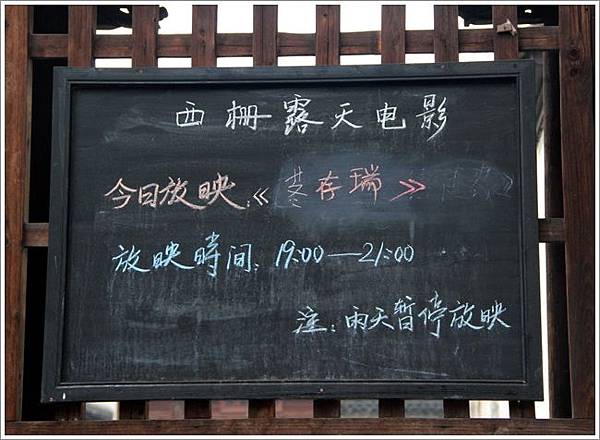 西栅露天电影
今日放映:《苳存瑞》
放映時間: 19:00—21:00
注: 雨天暂停放映